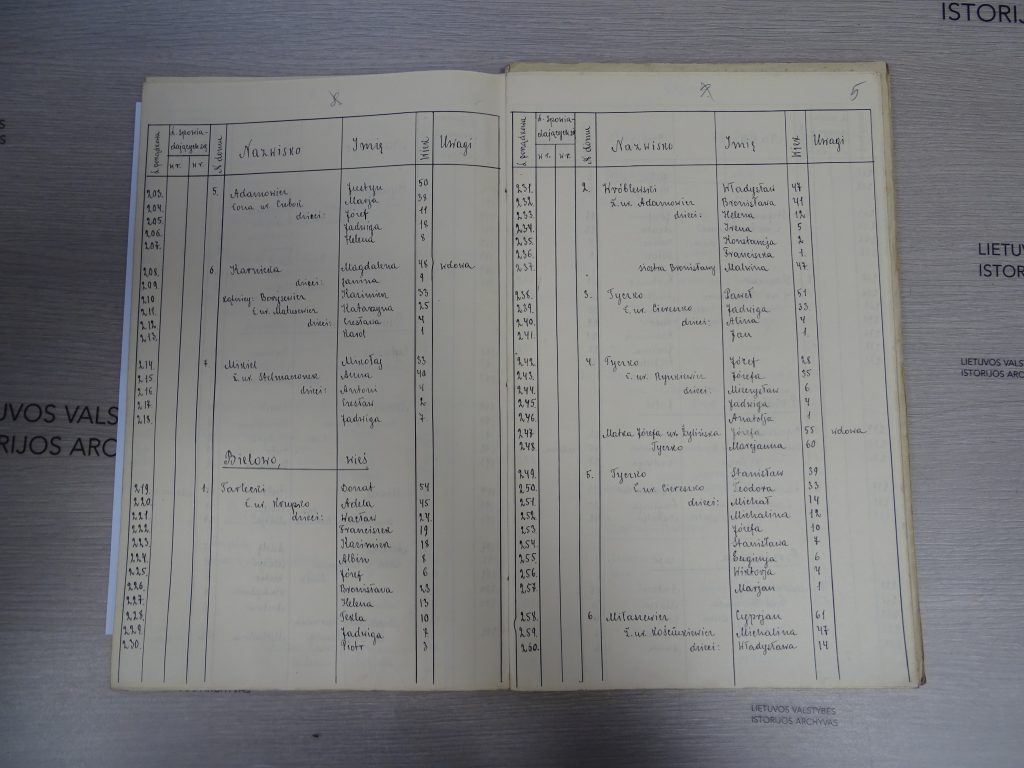 ISTORIJ
LIETUV
ISTORI
LIETUVOS VALST
ISTORIJOS ARCHYV
UVOS VALST
RIJOS AR
LIETUVOS VALSTYBĖS
ISTORIJOS ARCHYVAS
8
N domu
Nazwisko
Imię
Wiek
Uwagi
203. 5. Adamowicz Justyn 50
204. Marja 38
205. dzieci: Józef 11
206. Jadwiga 18
207. Helena 8
208. 6. Karnicka Magdalena 48 wdowa
209. dzieci: Janina 9
210. Boryszewicz Kazimierz 33
211. Ż. ur. Matusewicz Katarzyna 25
212. dzieci: Czesława 4
213. Karol 1
214. 7. Mikiel Mikołaj 33
215. Ż. ur. Anna 40
216. dzieci: Antoni 4
217. Czesław 2
218. Jadwiga 7
Bielowo, wieś
219. 1. Tarlecki Donat 54
220. Ż. ur. Krupsko Adela 45
221. dzieci: Wacław 24
222. Franciszek 19
223. Kazimierz 18
224. Albin 8
225. Józef 6
226. Bronisława 23
227. Helena 13
228. Tekla 10
229. Jadwiga 7
230. Piotr 3
7 5
N domu
Nazwisko
Imię
Wiek
Uwagi
231. 2. Wróblewski Władysław 47
232. Ż. ur. Adamowicz Bronisława 41
233. dzieci: Helena 12
234. Irena 5
235. Konstancja 2
236. Franciszka 1
237. siostra Bronisławy Malwina 47
238. 3. Tyczko Paweł 51
239. Ż. ur. Ciereszko Jadwiga 33
240. dzieci: Alina 4
241. Jan 1
242. 4. Tyczko Józef 28
243. Ż. ur. Józefa 35
244. dzieci: Mieczysław 6
245. Jadwiga 4
246. Anatolja 1
247 Matka Józefa ur. Żylińska Józefa 55 wdowa
248. Tyczko Marcjanna 60
249. 5. Tyczko Stanisław 39
250. Ż. ur. Ciereszko Teodora 33
251. dzieci: Michał 14
252 Michalina 12
253 Józefa 10
254. Stanisława 7
255. Eugenja 6
256. Wiktorja 4
257. Marjan 1
258. 6. Miłaszewicz Cyprjan 61
259. Ż. ur. Kościukiewicz Michalina 47
260. dzieci: Władysława 14